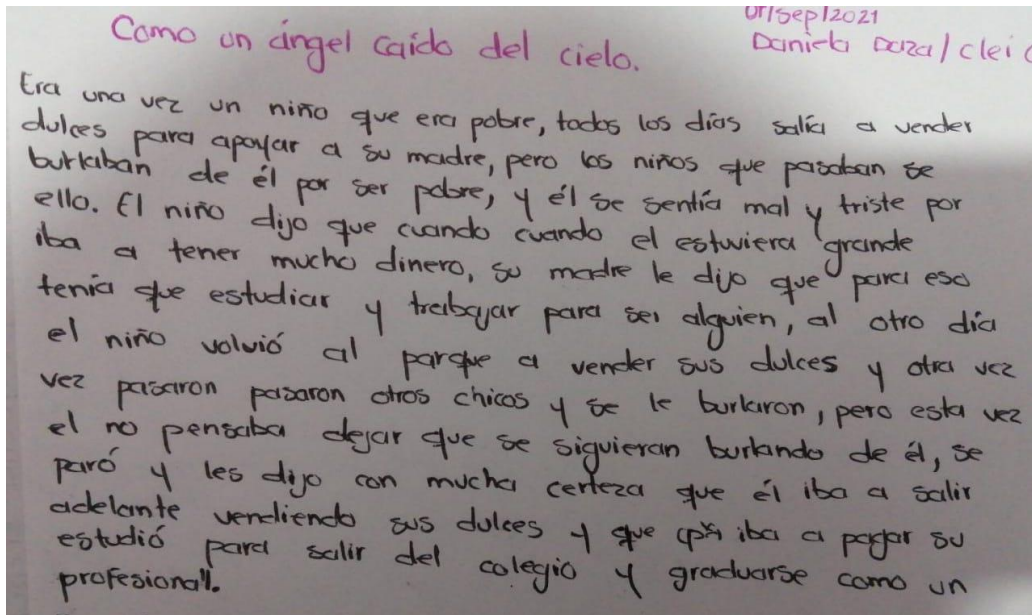 01/sep/2021
Como un ángel caído del cielo.
Daniela Daza/clei
Era una vez un niño que era pobre, todos los días salía a vender
dulces para apoyar a su madre, pero los niños que pasaban se
burlaban de él por ser pobre, y él se sentía mal y triste por
ello. El niño dijo que cuando cuando el estuviera grande
iba a tener mucho dinero, su madre le dijo que para eso
tenía que estudiar y trabajar para ser alguien, al otro día
el niño volvió al parque a vender sus dulces y otra vez
vez pasaron pasaron otros chicos y se le burlaron, pero esta vez
el no pensaba dejar que se siguieran burlando de él, se
paró y les dijo con mucha certeza que él iba a salir
adelante vendiendo sus dulces y que iba a pagar su
estudió para salir del colegio y graduarse como un
profesional.